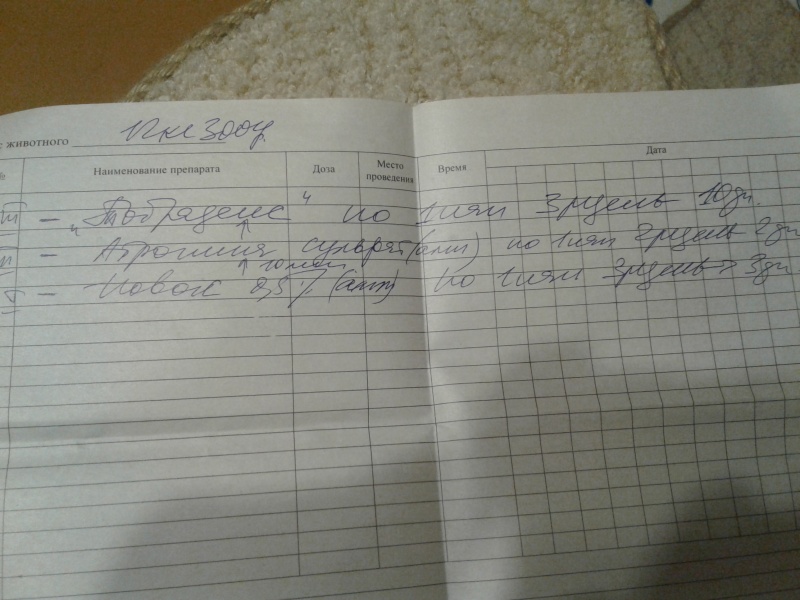 с животного 12 кг 300 гр.
№ Наименование препарата Доза Место проведения Время Дата
III — "Тобрадекс" по 1 кап 3 р/день 10 дн.
II — Атропина сульфат (амп) по 1 кап 2 р/день 2 дн
10 мин
I — Новок 0,5% (амп) по 1 кап 3 р/день 3 дн